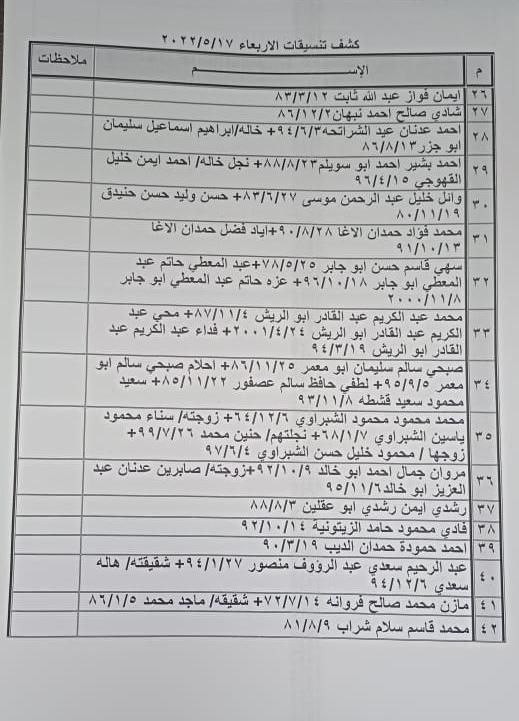 كشف تنسيقات الاربعاء ٢٠٢٢/٥/١٧
م الإســـــم ملاحظات
٢٦ ايمان فواز عبد الله ثابت ٨٣/٣/١٢
٢٧ شادي صالح احمد نبهان ٨٦/١٢/٢
٢٨ احمد عدنان عيد الشراتحه ٩٤/٦/٣+ خاله/ابراهيم اسماعيل سليمان
ابو جزر ٨٦/٨/١٣
٢٩ احمد بشير احمد ابو سويلم ٨٨/٨/٢٣+ نجل خاله/ احمد ايمن خليل
القهوجي ٩٦/٤/١٥
٣٠ وائل خليل عبد الرحمن موسى ٨٣/٦/٢٧+ حسن وليد حسن حنيدق
٨٠/١١/١٩
٣١ محمد فؤاد حمدان الاغا ٩٠/٨/٢٨+اياد فضل حمدان الاغا
٩١/١٠/١٣
٣٢ سهي قاسم حسن ابو جابر ٧٨/٥/٢٥+عبد المعطي حاتم عبد
المعطي ابو جابر ٩٦/١٠/١٨+ عزه حاتم عبد المعطي ابو جابر
٢٠٠٠/١١/٨
٣٣ محمد عبد الكريم عبد القادر ابو الريش ٨٧/١١/٤+ محي عبد
الكريم عبد القادر ابو الريش ٢٠٠١/٤/٢٤+ فداء عبد الكريم عبد
القادر ابو الريش ٩٤/٣/١٩
٣٤ صبحي سالم سليمان ابو معمر ٨٦/١١/٢٥+ احلام صبحي سالم ابو
معمر ٩٥/٩/٥+ لطفي حافظ سالم عصفور ٨٥/١١/٢٢+ سعيد
محمود سعيد قشطه ٩٣/١١/٨
٣٥ محمد محمود محمود الشبراوي ٦٤/١٢/٦+ زوجته/ سناء محمود
ياسين الشبراوي ٦٨/١/٧+ نجلتهم/ حنين محمد ٩٩/٧/٢٦+
زوجها / محمود خليل حسن الشبراوي ٩٧/٦/٤
٣٦ مروان جمال احمد ابو خالد ٩٢/١٠/٩+زوجته/ صابرين عدنان عبد
العزيز ابو خالد ٩٥/١١/٦
٣٧ رشدي ايمن رشدي ابو عقلين ٨٨/٨/٣
٣٨ فادي محمود حامد الزيتونية ٩٢/١٠/١٤
٣٩ احمد حمودة حمدان الديب ٩٠/٣/١٩
٤٠ عبد الرحيم سعدي عبد الرؤوف منصور ٩٤/١/٢٧+ شقيقته/ هاله
سعدي ٩٤/١٢/٦
٤١ مازن محمد صالح فروانه ٧٢/٧/١٤+ شقيقه/ ماجد محمد ٨٦/١/٥
٤٢ محمد قاسم سلام شراب ٨١/٨/٩